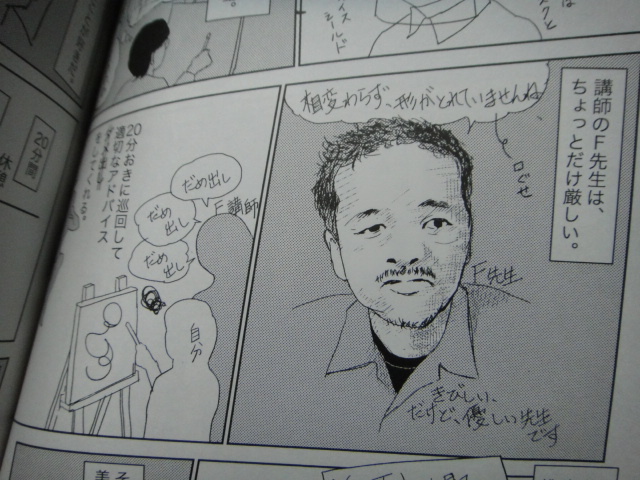 講師のF先生は、
ちょっとだけ厳しい。
相変わらず、形がとれていませんね
口ぐせ
F先生
きびしい、
だけど、優しい先生
です
20分おきに巡回して
適切なアドバイス
だめ出し
だめ出し
だめ出し
F講師
自分
20分間
休憩